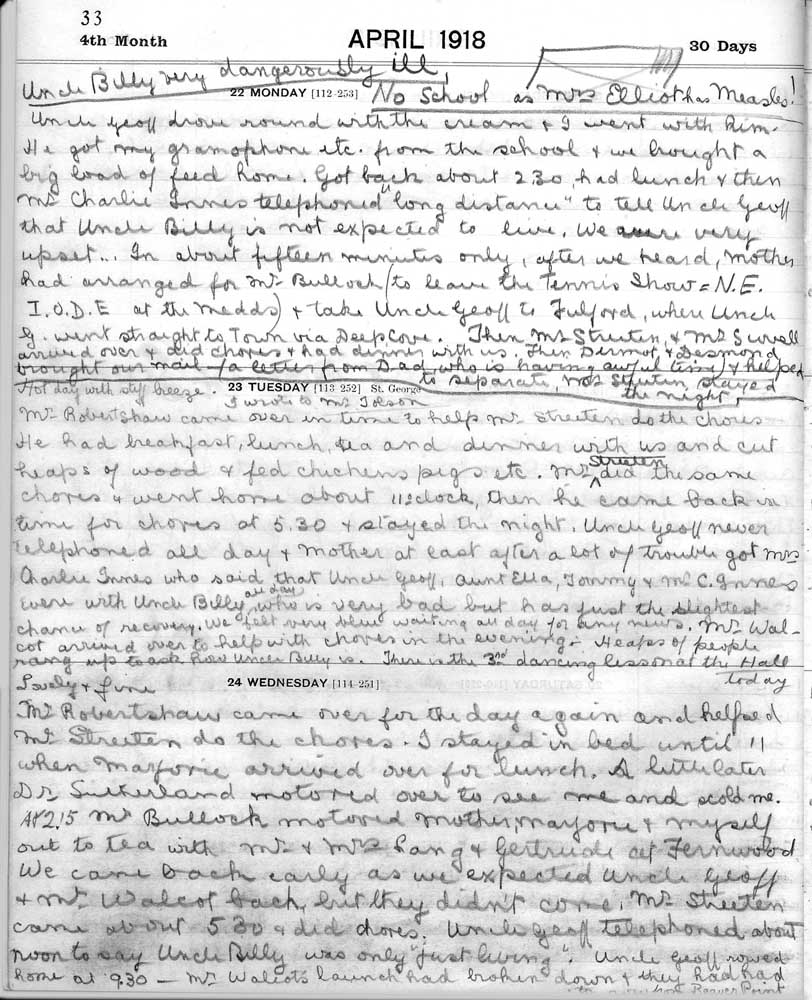 33
4th Month APRIL 1918 30 Days
Uncle Billy very dangerously ill,
22 MONDAY [112-253] No School as Mrs Elliot has Measles!
Uncle Geoff drove round with the cream & I went with him.
He got my gramophone etc. from the school & we brought a
big load of feed home. Got back about 2.30, had lunch & then
Mr Charlie Innes telephoned "long distance" to tell Uncle Geoff
that Uncle Billy is not expected to live. We were very
upset... In about fifteen minutes only, after we heard, Mother
had arranged for Mr Bullock (to leave the Tennis Show = N.E.
I.O.D.E at the Medds) & take Uncle Geoff to Fulford, when Uncle
G. went straight to Town via Deep Cove. Then Mr Streeten, & Mr Survall
arrived over & did chores & had dinner with us. Then Dermot, & Desmond
brought our mail - (a letter from Dad, who is having awful time) & helped
to separate, Mr Streeten stayed
the night,
Hot day with stiff breeze. 23 TUESDAY [113-252] St. George
I wrote to Mr Tolson
Mr Robertshaw came over in time to help Mr Streeten do the chores
He had breakfast, lunch, tea and dinner with us and cut
heaps of wood & fed chickens pigs etc. Mr Streeten did the same
chores & went home about 11 o'clock, then he came back in
time for chores at 5.30 & stayed the night. Uncle Geoff never
telephoned all day & Mother at last after a lot of trouble got Mrs
Charlie Innes who said that Uncle Geoff, Aunt Ella, Tommy & Mr C. Innes
were with Uncle Billy all day, who is very bad but has just the slightest
chance of recovery. We felt very blue waiting all day for any news. Mr Wal-
cot arrived over to help with chores in the evening. Heaps of people
rang up to ask how Uncle Billy is. There is the 3rd dancing lesson at the Hall
today
Lovely & fine 24 WEDNESDAY [114-251]
Mr Robertshaw came over for the day again and helped
Mr Streeten do the chores. I stayed in bed until 11
when Marjorie arrived over for lunch. A little later
Dr Sutherland motored over to see me and scold me.
At 2.15 Mr Bullock motored Mother, Marjorie & myself
out to tea with Mr & Mrs Lang & Gertrude at Fernwood
We came back early as we expected Uncle Geoff
& Mr Walcot back, but they didn't come, Mr Streeten
came about 5.30 & did chores. Uncle Geoff telephoned about
noon to say Uncle Billy was only "just living". Uncle Geoff rowed
home at 9.30 - Mr Walcots launch had broken down & they had had
Beaver Point